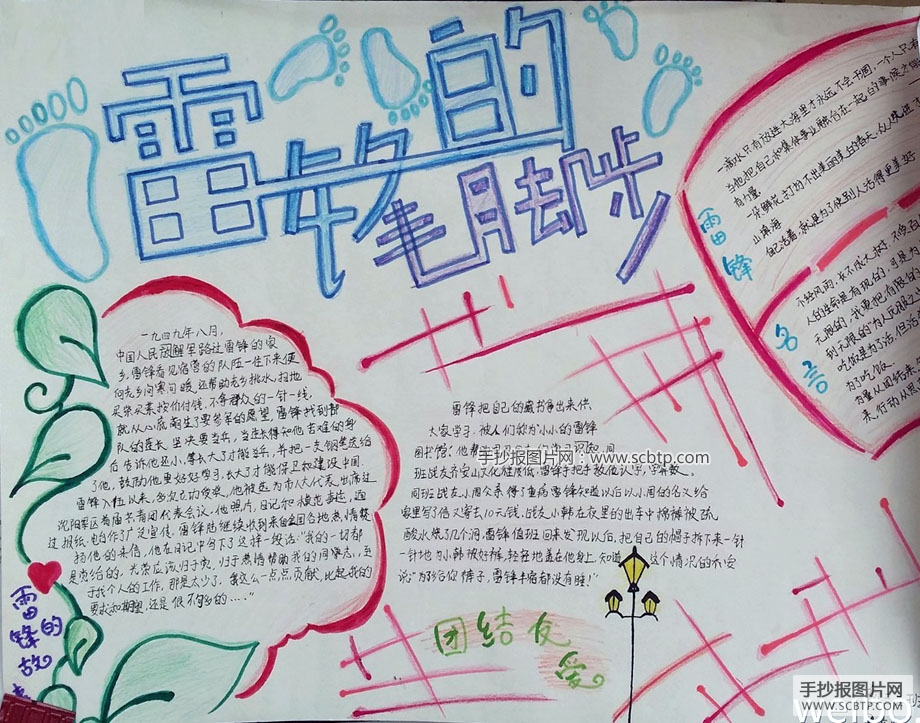 雷锋的
脚步
一滴水只有放进大海里才永远不会干涸,一个人只有
当他把自己和集体事业融合在一起的事候才
有力量
一朵鲜花打扮不出美丽的春天,众人先进
山填海
自己活着,就是为了使别人活得更美好
雷锋
名言
不经风雨,长不成大树,不受百
人的生命是有限的,可是为
无限的,我要把有限的
到无限的为人民服务
吃饭是为了活,但活
为了吃饭
力量从团结来,
来,行动从思
一九四九年八月,
中国人民解放军路过雷锋的家
乡,雷锋看见宿营的队伍一住下来便
向老乡问寒问暖,还帮助老乡挑水,扫地
买菜买柴按价付钱,不拿群众的一针一线,
就从心底萌生了要参军的愿望,雷锋找到部
队的连长,坚决要当兵,当连长得知他苦难的身
后告诉他还小,等长大了才能当兵,并把一支钢笔送给
了他,鼓励他要好好学习,长大了才能保卫和建设中国.
雷锋入伍以来,多次立功受奖,他被选为市人大代表,出席过
沈阳军区首届共青团代表会议,他照片,日记和模范事迹,通
过报纸,电台作了广泛宣传,雷锋陆继续收到来自全国各地热情赞
扬他的来信,他在日记中写下了这样一段话:“我的一切都
是党给的,光荣应该归于党,归于热情帮助我的同志,至
于我个人的工作,那是太少了,我这么一点点贡献,比起我的
要求和期望,还是很不够的....”
雷锋的故
雷锋把自己的藏书拿出来供
大家学习,被人们称为小小的雷锋
图书馆,他帮
手抄报图片网:www.scbtp.com
班战友乔安山文化程度低,雷锋手把手教他认字,学算数.
同班战友小周父亲得了重病雷锋知道以后以小周的名义给
家里写了信又寄去10元钱,战友小韩在夜里的出车中棉裤被硫
酸水烧了几个洞,雷锋值班回来发现以后,把自己的帽子拆下来一针
一针地为小韩被好裤,轻轻地盖在他身上,知道这个情况的乔安
说“为了给你裤子,雷锋半宿都没有睡!”
团结友
爱
手抄报图片网
www.scbtp.com